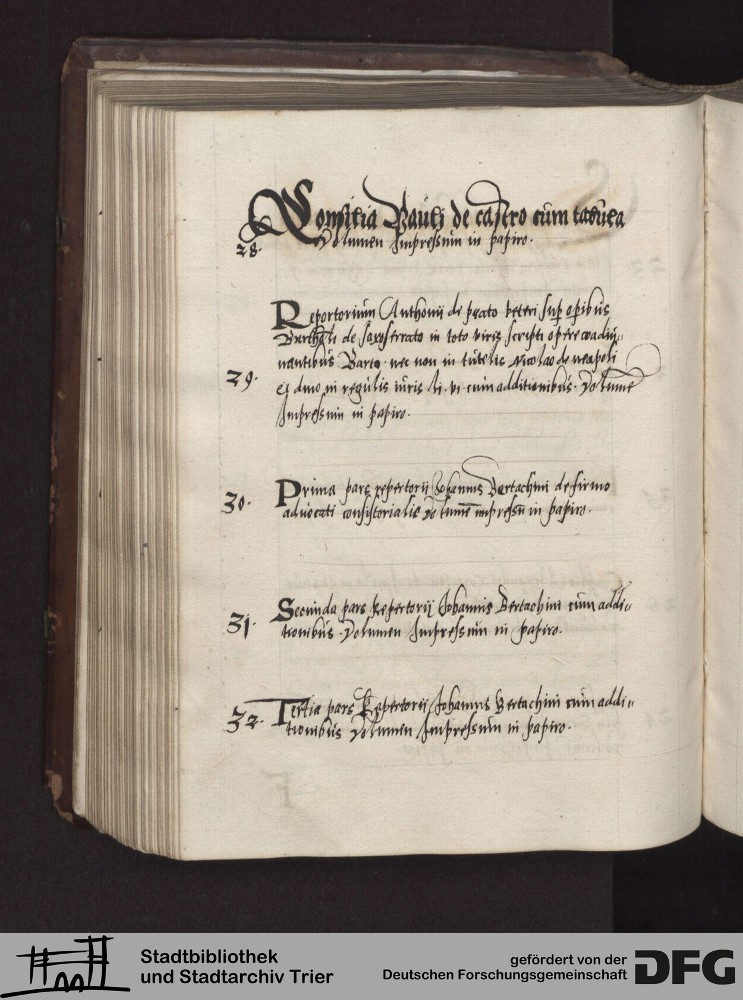 Consilia Pauli de castro cum tabula
28. Volumen Impressum in papiro.
Reportorium Anthonii de prato veteri sup opibus
de saxoferrato in toto viris scripti opere coadiu„
nantibus Barto. nec non in tutelis Nicolao de neapoli
29. Et dino in regulis iuris li. vi cum additionibus. Volume
Impressum in papiro.
30. Prima pars repertorii Johannis Bertachini de firmo
advocati consistorialis Volumen impressu in papiro.
31. Secunda pars Repertorij Johannis Bertachini cum addi„
tionibus. Volumen Impressum in papiro.
32. Tertia pars Repertorij Johannis Bertachini cum addi„
tionibus Volumen Impressum in papiro.
Stadtbibliothek
und Stadtarchiv Trier
gefördert von der
Deutschen Forschungsgemeinschaft
DFG